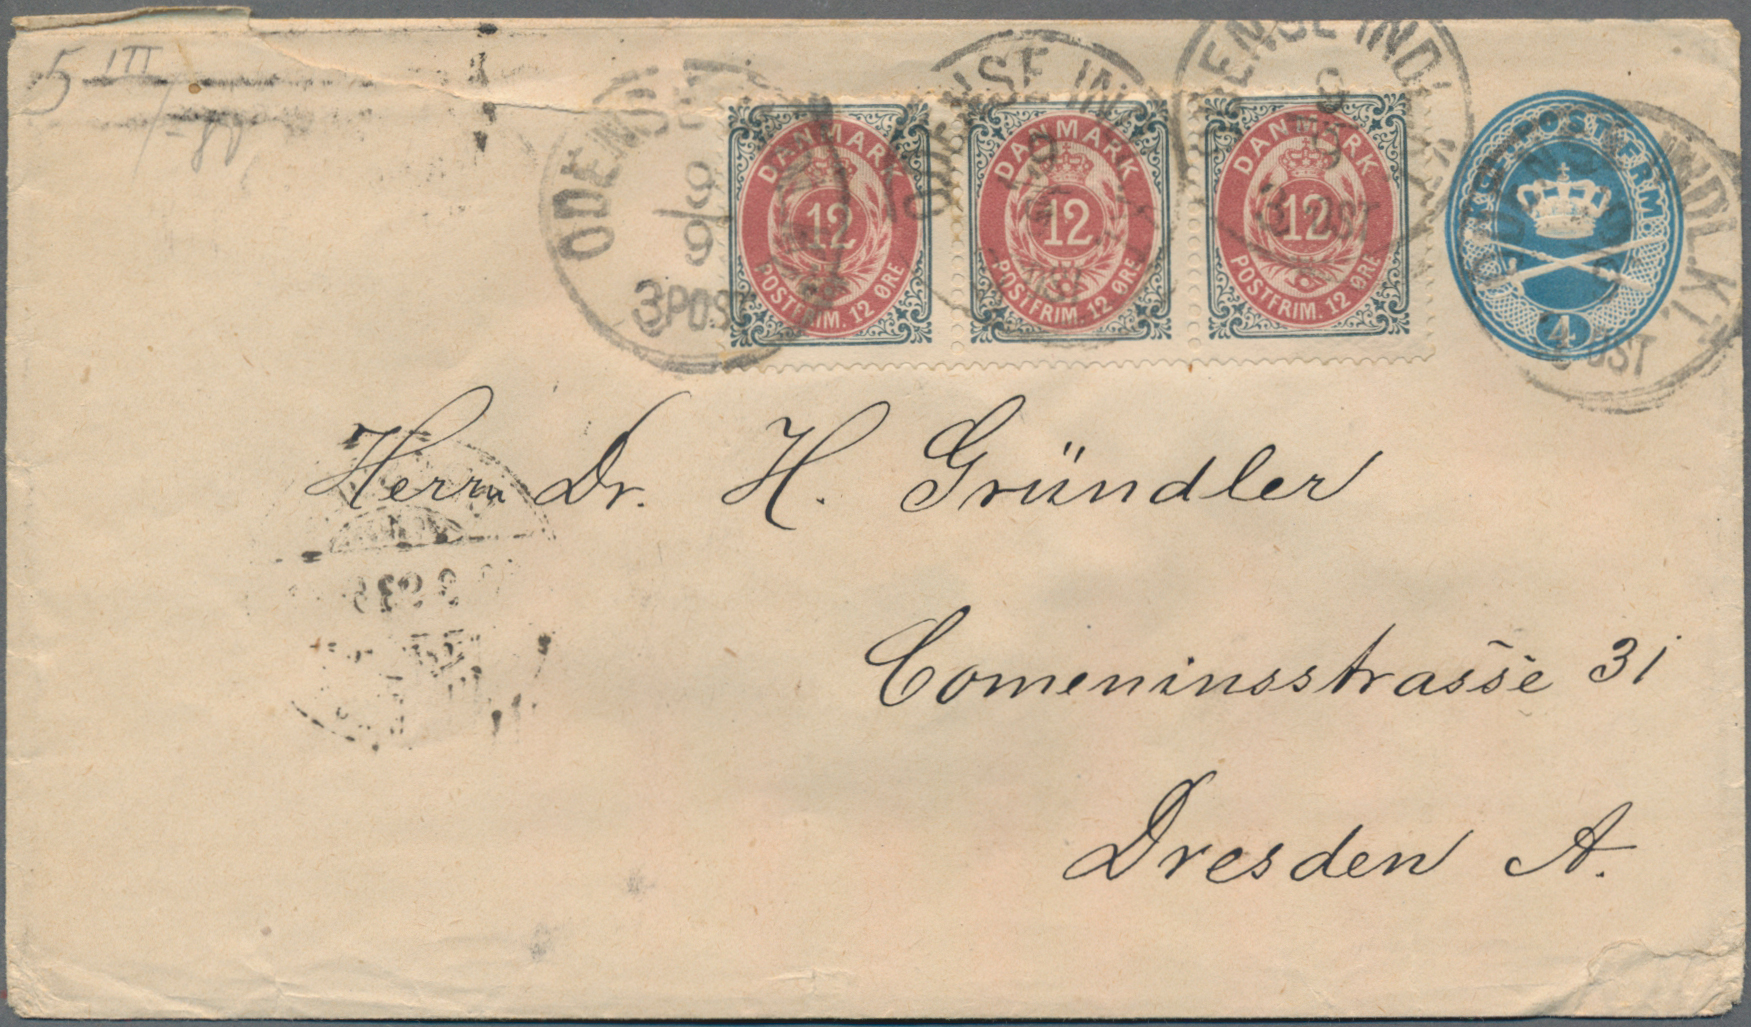 5 III
ODENSE
8/9
3POST
DANMARK
12
POSTFRIM. 12 ØRE
ODENSE IN
DANMARK
12
POSTFRIM. 12 ØRE
DENSE INDL.
9
3 POST
DANMARK
12
POSTFRIM. 12 ØRE
KGL POSTFRM
4
INDL.KT.
POST
Herrn Dr. H. Gründler
Comeninsstrasse 31
Dresden A.